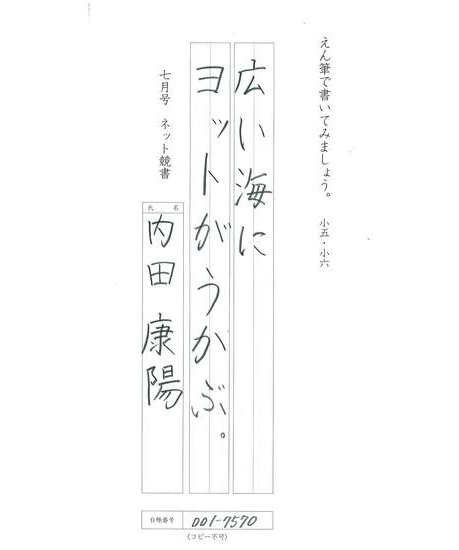 えん筆で書いてみましょう。 小五・小六
広い海に
ヨットがうかぶ。
七月号 ネット競書
氏名
内田康陽
台帳番号 001-7570
(コピー不可)